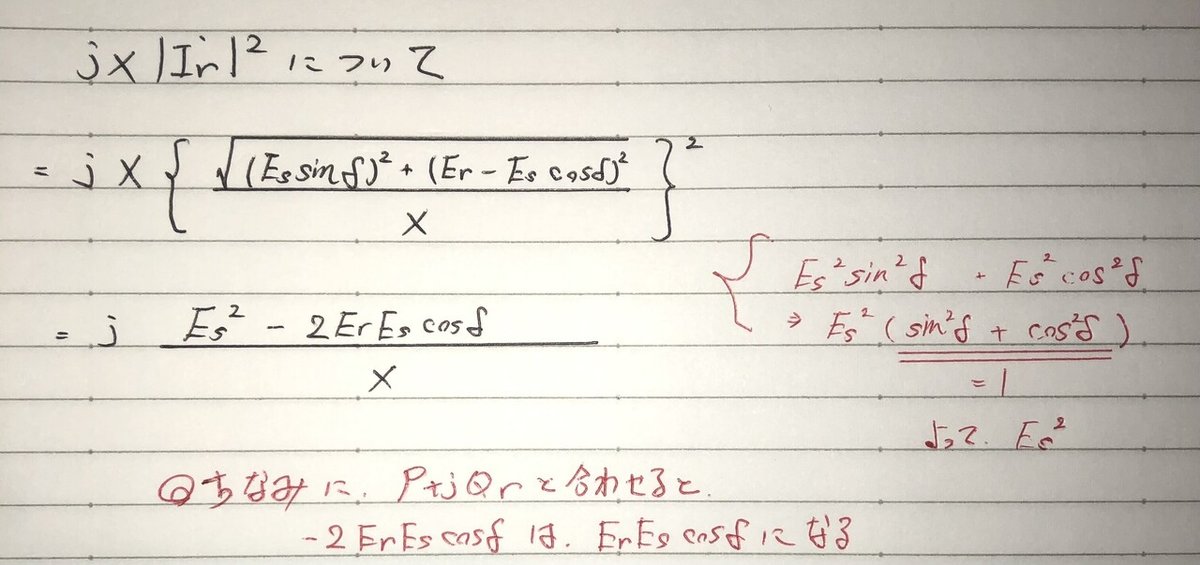 jX|İr|² について
= jX{ √((Es sinδ)² + (Er - Es cosδ)²) / X }²
= j (Es² - 2ErEs cosδ) / X
{ Es² sin²δ + Es² cos²δ
⇒ Es² ( sin²δ + cos²δ )
= 1
よって. Es²
◎ちなみに. P+jQrと合わせると.
-2ErEs cosδ は. ErEs cosδ になる